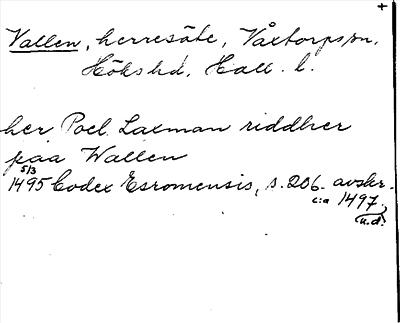 +
Vallen, herresäte, Våxtorps sn,
Höks hd, Hall. l.
her Poel Laxman riddher
paa Wallen
5/3
1495 Codex Esromensis, s. 206. avskr.
c:a 1497.
(u.d.)